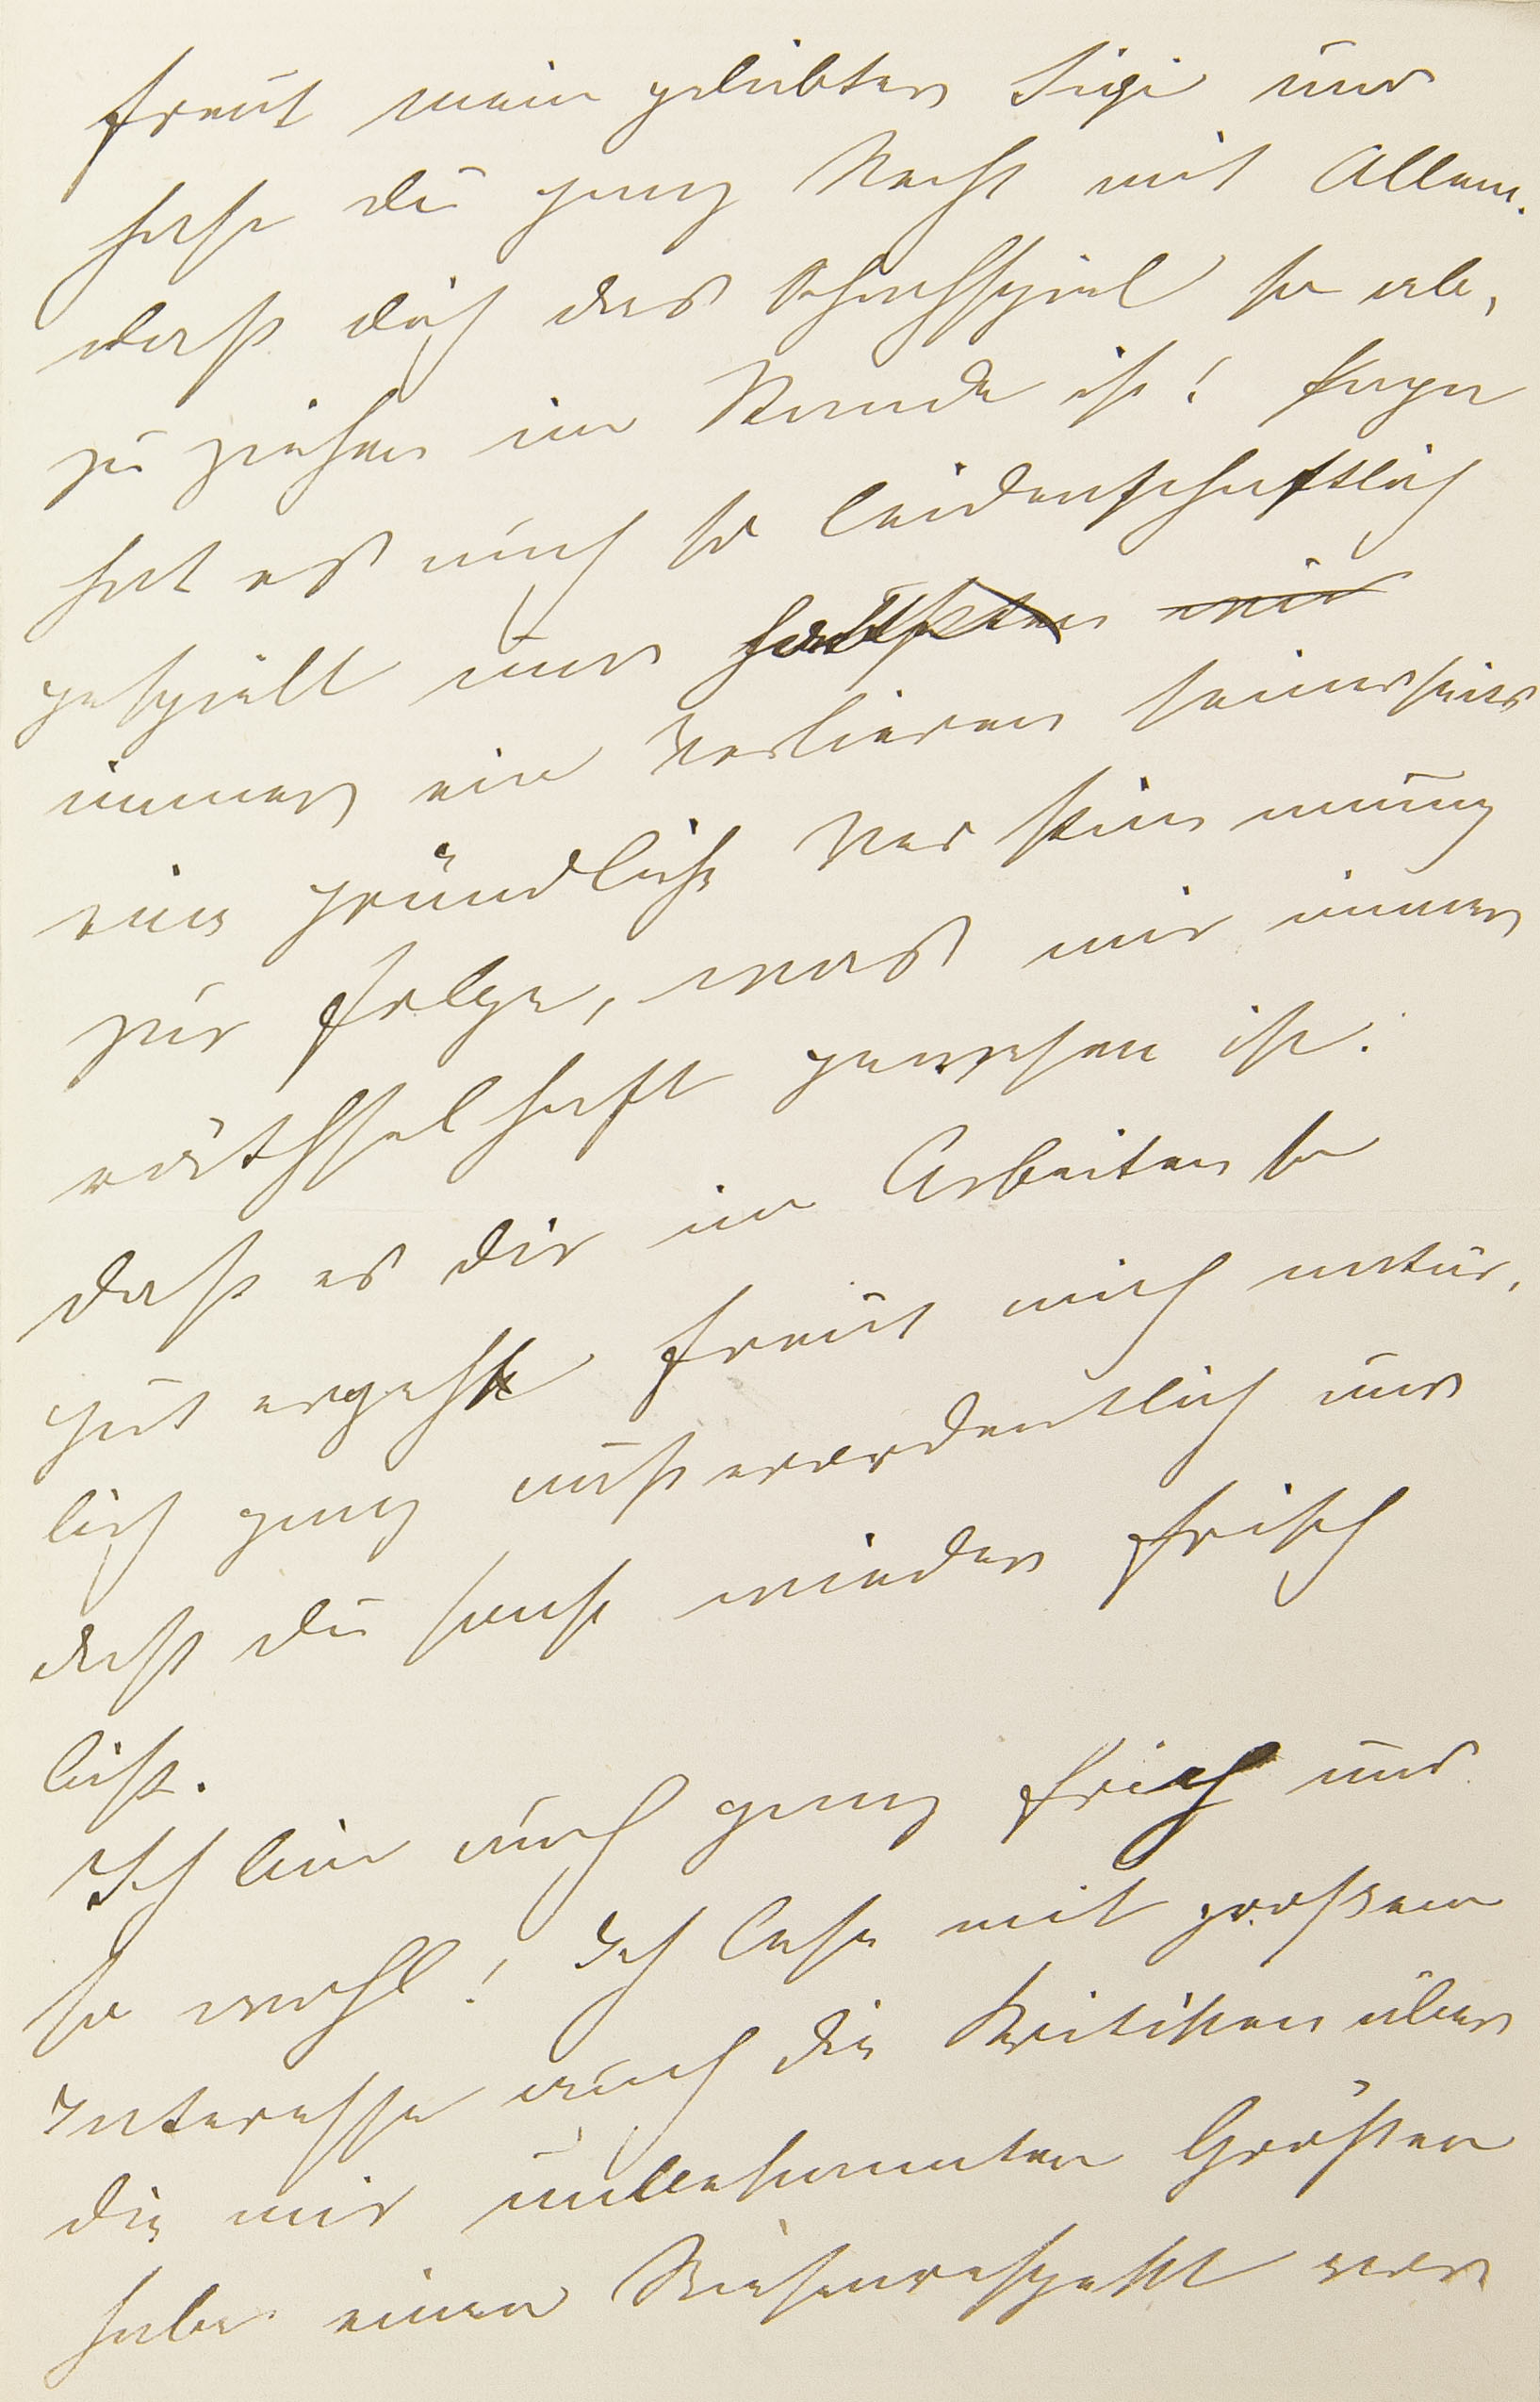 freut mein geliebter Sigi und
hast du ganz Recht mit Allem.
daß dich das Schachspiel so ab,
zu ziehen im Stande ist! Papa
hat es auch so leidenschaftlich
gespielt und hatte
immer ein Verlieren seinerseits
eine gründliche Verstimmung
zur Folge, was mir immer
räthselhaft gewesen ist.
daß es dir im Arbeiten so
gut ergeht freut mich natür,
lich ganz außerordentlich und
daß du sonst wieder frisch
bist.
Ich bin auch ganz frisch und
so wohl! Ich lese mit großem
Interesse auch die Kritiken über
die mir unbekannten Größen
habe einen Riesenrespekt vor